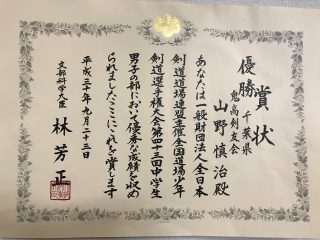 賞状
優勝
千葉県
鬼高剣友会
山野慎治殿
あなたは一般財団法人全日本
剣道道場連盟主催全国道場少年
剣道選手権大会第四十三回中学生
男子の部において優秀な成績を収め
られましたここにこれを賞します
平成三十年九月二十三日
文部科学大臣
林芳正